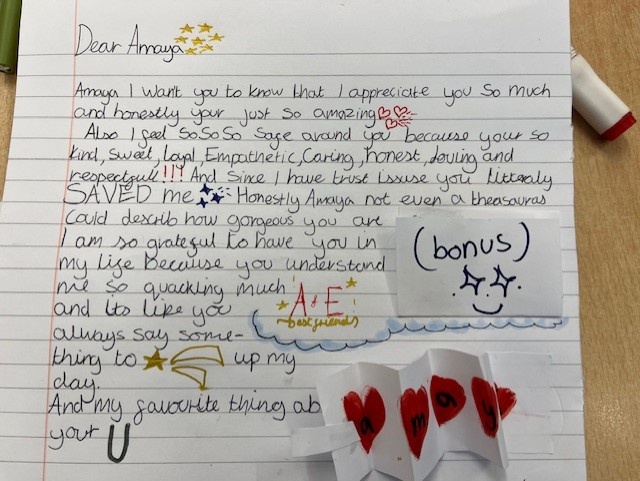 Dear Amaya
Amaya I want you to know that I appreciate you so much
and honestly your just so amazing
Also I feel So.So.So Safe around you because your so
kind, Sweet, loyal, Empathetic, Caring, honest, loving and
respectfull!!! And since I have trust issuse you litteraly
SAVED me Honestly Amaya not even a theasauras
Could describ how gorgeous you are
I am so grateful to have you in
my life because you understand
me so quacking much
and its like you
always say some-
thing to up my
day.
And my favourite thing ab
your U
(bonus)
A & E
best friends
a m a y